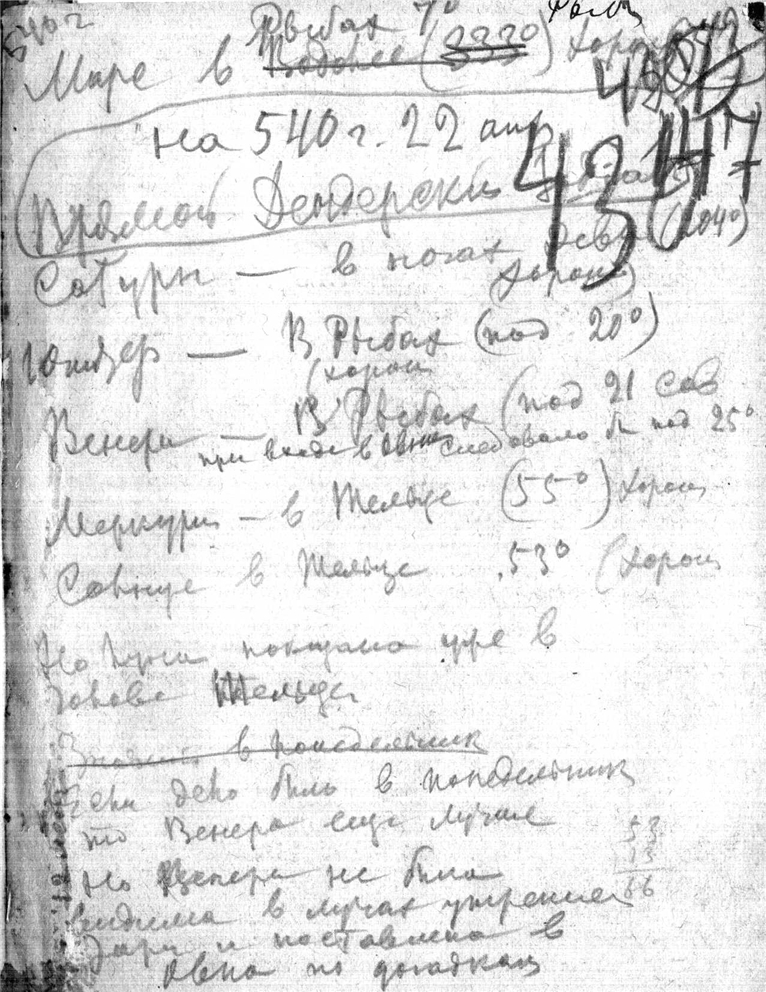 540 г
Рыбах 7°
Марс в Водолее (333°) хорош
на 540 г. 22 апр
43147
Прямой Дендерский
Сатурн — в ногах Девы (204°)
(хорош)
Юпитер — в Рыбах (под 20°)
(хорош
Венера — в Рыбах (под 21
при входе в Овна следовало б под 25°
Меркурий — в Тельце (55°) хорош
Солнце в Тельце 53° (хорош
Но Луна показана уже в
голове Тельца
в понедельник
Если дело было в понедельник
то Венера еще лучше
53
13
66
Но Венера не была
видима в лучах утренней
зари и поставлена в
Овна по догадкам